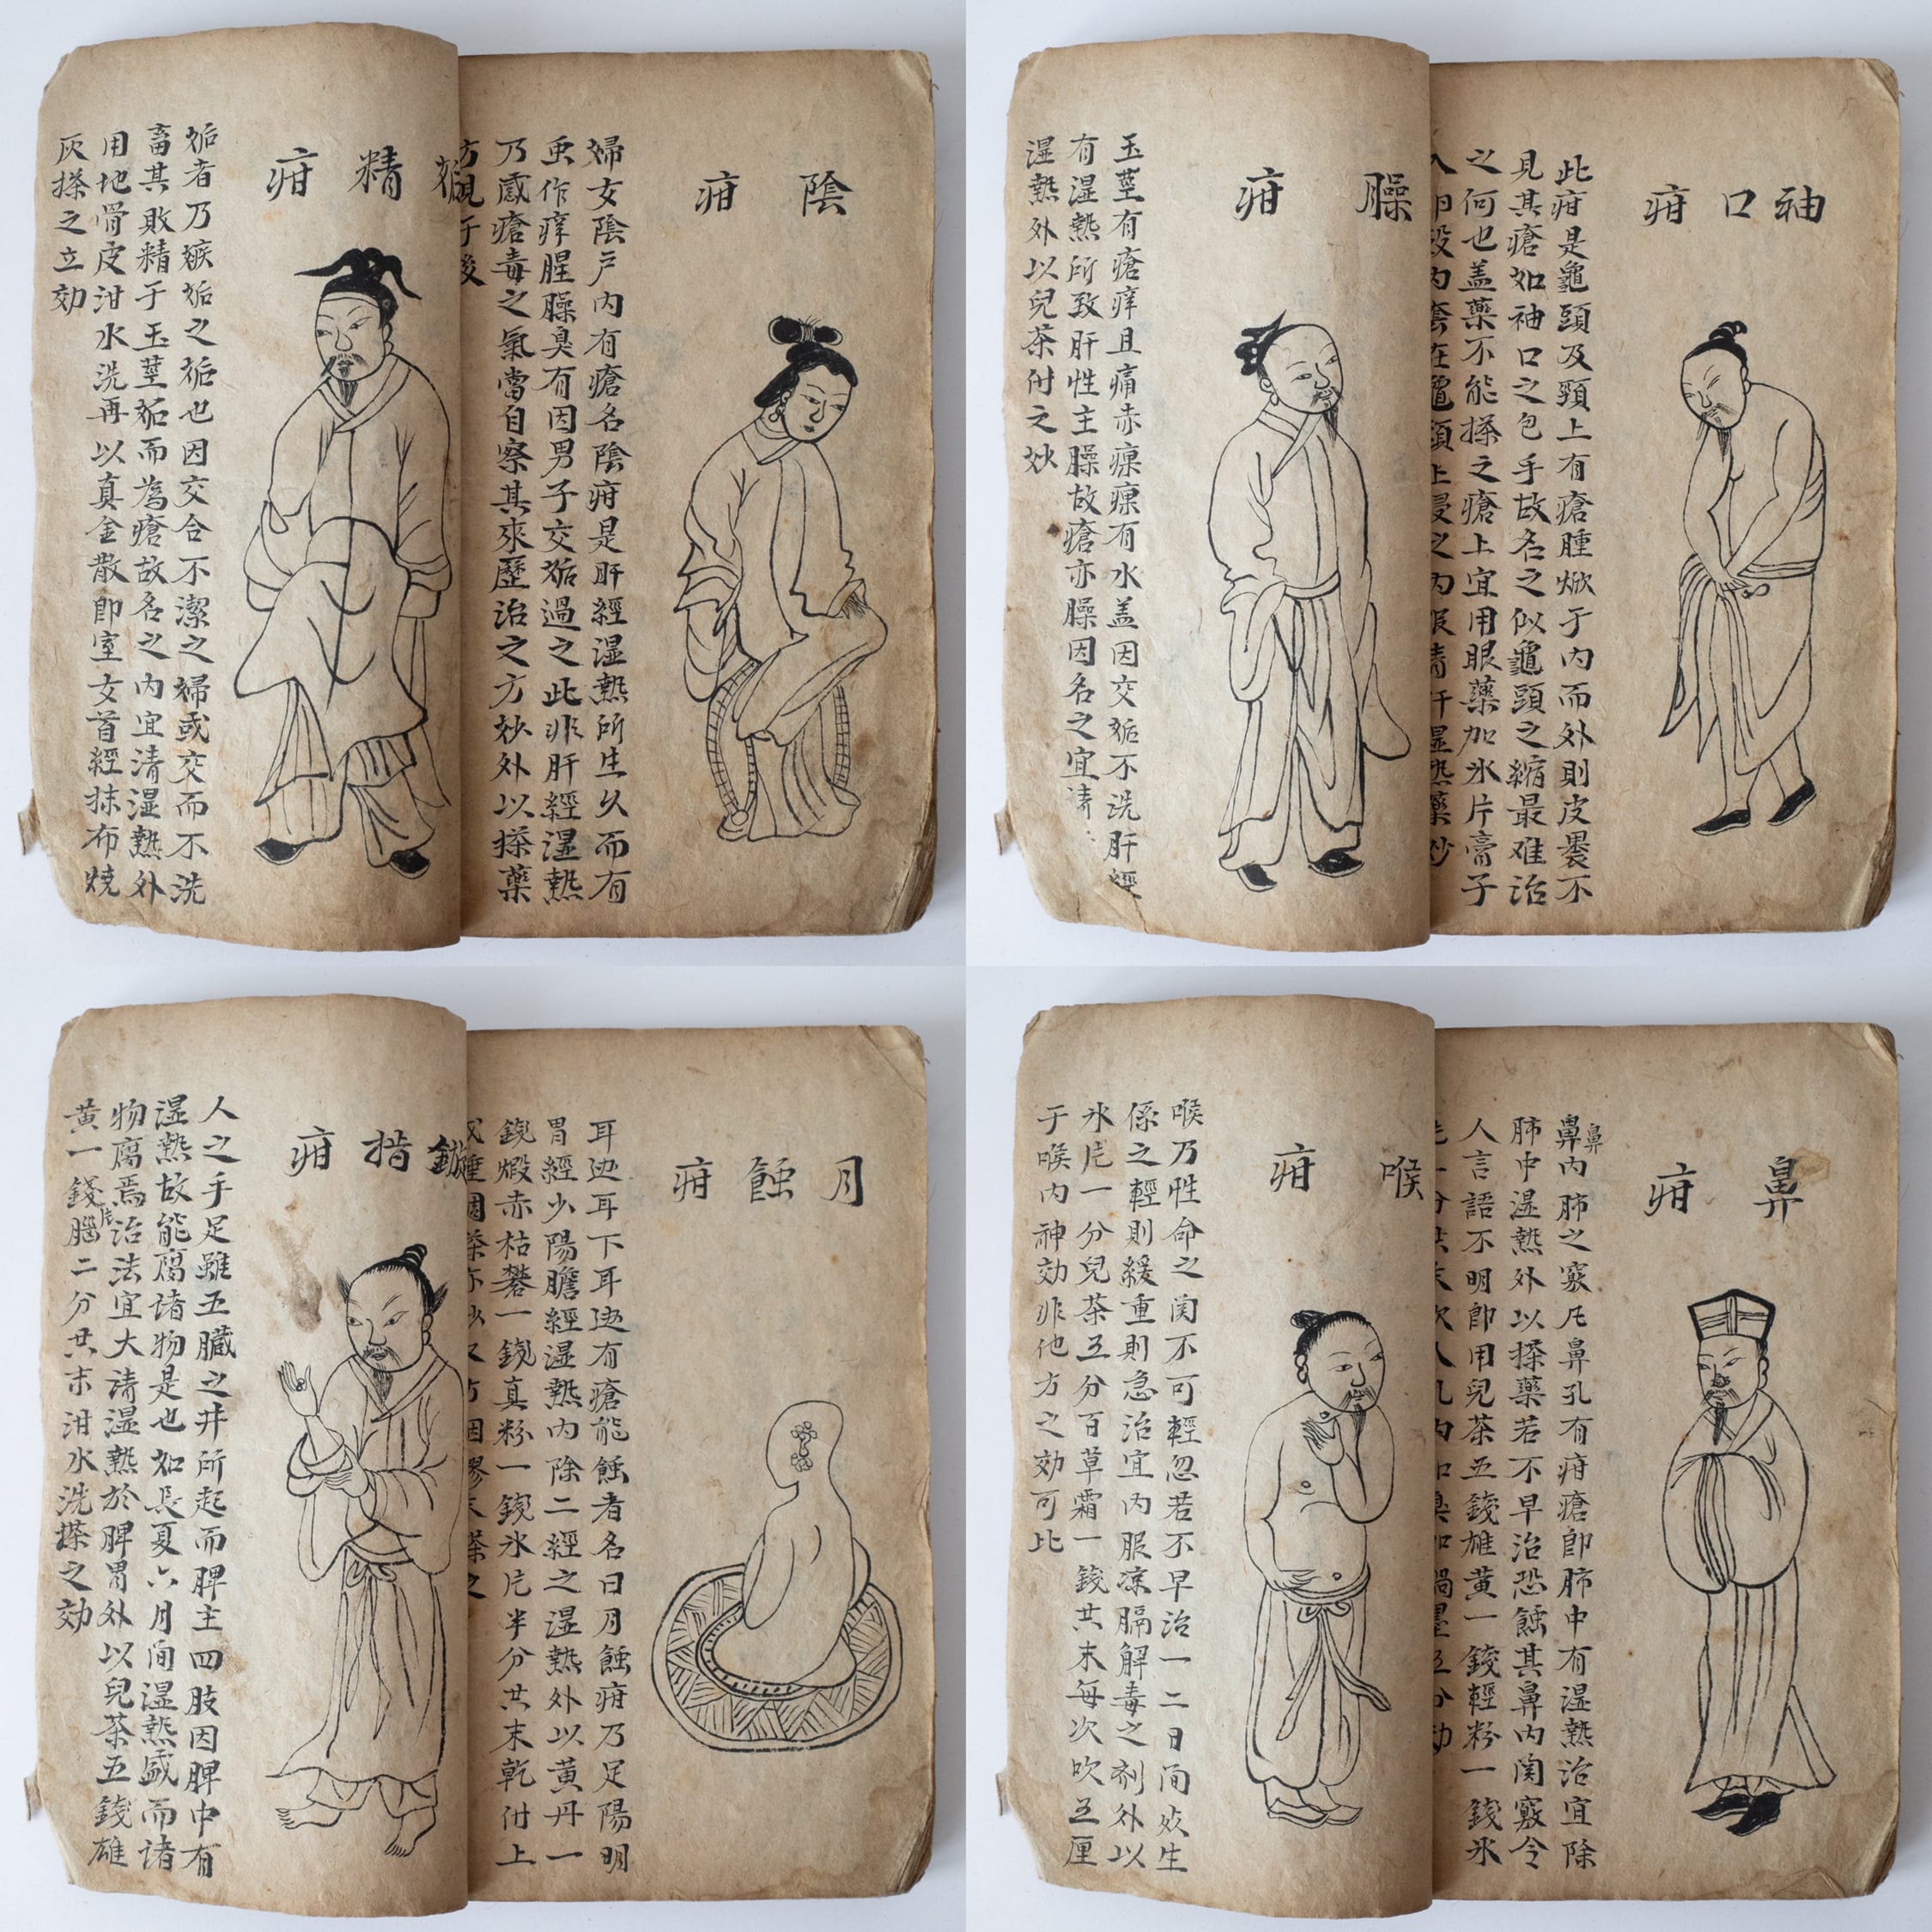 陰疳
婦女陰戸內有瘡名陰疳是肝經湿熱所生久而有
虫作痒腥臊臭有因男子交姤過之此非肝經湿熱
乃感瘡毒之氣當自察其來歷治之方妙外以搽藥
方見于後
姤精疳
姤者乃嫉姤之姤也因交合不潔之婦或交而不洗
畜其敗精于玉莖姤而為瘡故名之內宜清湿熱外
用地骨皮泔水洗再以真金散即室女首經抹布燒
灰搽之立効
袖口疳
此疳是龜頭及頸上有瘡腫焮于內而外則皮褁不
見其瘡如袖口之包手故名之似龜頭之縮最难治
之何也盖藥不能搽之瘡上宜用眼藥加氷片膏子
入卵殼內套在龜頭上浸之內服清肝湿热藥妙
臊疳
玉莖有瘡痒且痛赤瘰瘰有水盖因交姤不洗肝經
有湿熱所致肝性主臊故瘡亦臊因名之宜清
湿熱外以兒茶付之妙
月蝕疳
耳边耳下耳边有瘡能蝕者名曰月蝕疳乃足陽明
胃經少陽膽經湿熱內除二經之湿熱外以黃丹一
錢煅赤枯礬一錢真粉一錢氷片半分共末乾付上
搽之
指疳
人之手足雖五臟之井所起而脾主四肢因脾中有
湿熱故能腐诸物是也如長夏六月间湿熱盛而诸
物腐焉治法宜大清湿熱於脾胃外以兒茶五錢雄
黃一錢片腦二分共末泔水洗搽之効
鼻疳
鼻內肺之竅凡鼻孔有疳瘡即肺中有湿熱治宜除
肺中湿熱外以搽藥若不早治恐蝕其鼻內関竅令
人言語不明即用兒茶五錢雄黃一錢輕粉一錢氷
喉疳
喉乃性命之関不可輕忽若不早治一二日间效生
係之輕則緩重則急治宜內服凉膈解毒之剂外以
氷片一分兒茶五分百草霜一錢共末每次吹五厘
于喉內神効非他方之効可比